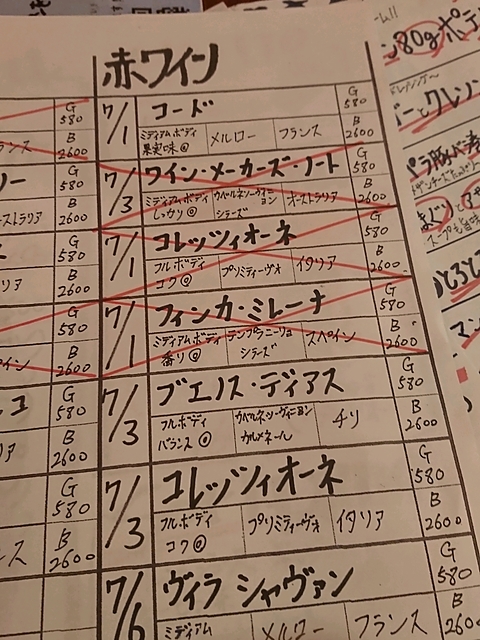 赤ワイン
7/1 コード G 580
ミディアムボディ 果実味◎ メルロー フランス B 2600
7/3 ワイン・メーカーズ・ノート G 580
ミディアムボディ しっかり◎ カベルネ・ソーヴィニョン シラーズ オーストラリア B 2600
7/1 コレッツィオーネ G 580
フルボディ コク◎ プリミティーヴォ イタリア B 2600
7/1 フィンカ・ミレーナ G 580
ミディアムボディ 香り◎ テンプラニーリョ シラーズ スペイン B 2600
7/3 ブエノス・ディアス G 580
フルボディ バランス◎ カベルネ・ソーヴィニョン カルメネール チリ B 2600
7/3 コレッツィオーネ G 580
フルボディ コク◎ プリミティーヴォ イタリア B 2600
7/6 ヴィラ シャヴァン G 580
ミディアム メルロー フランス B 260
G 580
ランス B 2600
G 580
ーストラリア B 2600
G 580
リア B 2600
G 580
ペイン B 2600
コ G 580
リア B 2600
G 580
ース B 2600
80g ポテ
ドレッシング〜
クレソン